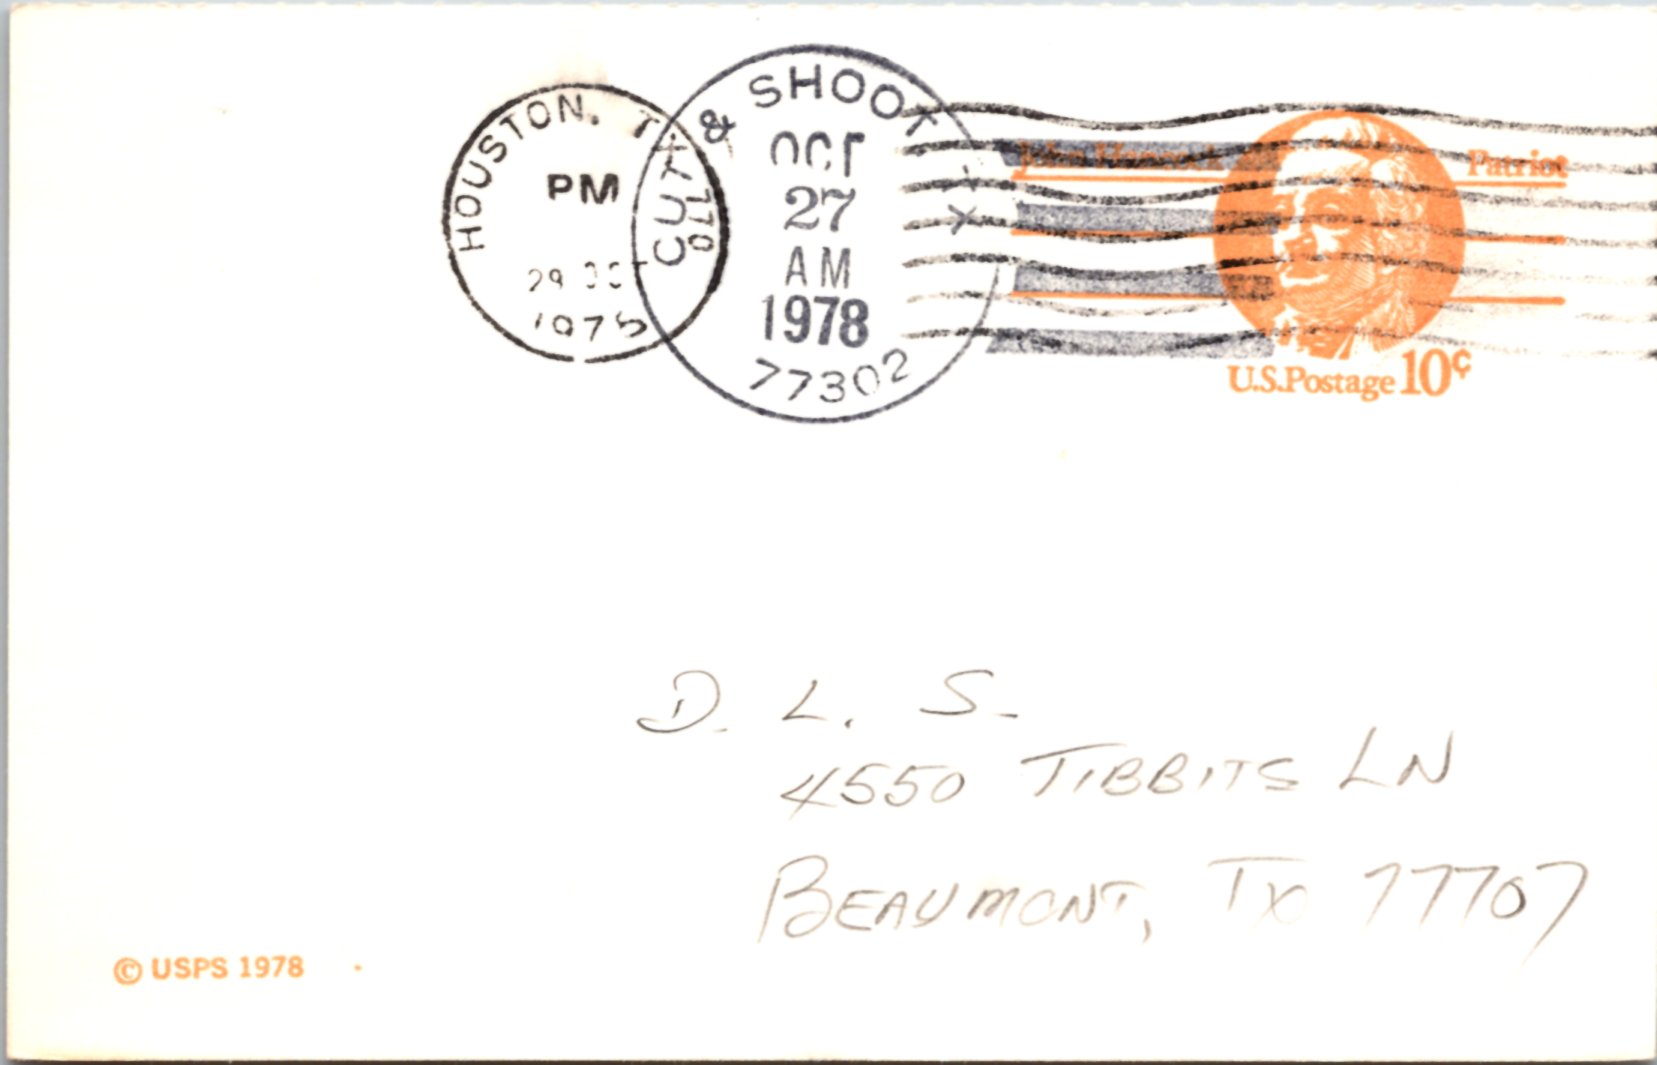 HOUSTON, TX 770
PM
29 OCT
1978
CUT & SHOOT TX
OCT
27
AM
1978
77302
John Hancock
Patriot
U.S.Postage 10¢
D. L. S.
4550 TIBBITS LN
BEAUMONT, TX 77707
© USPS 1978